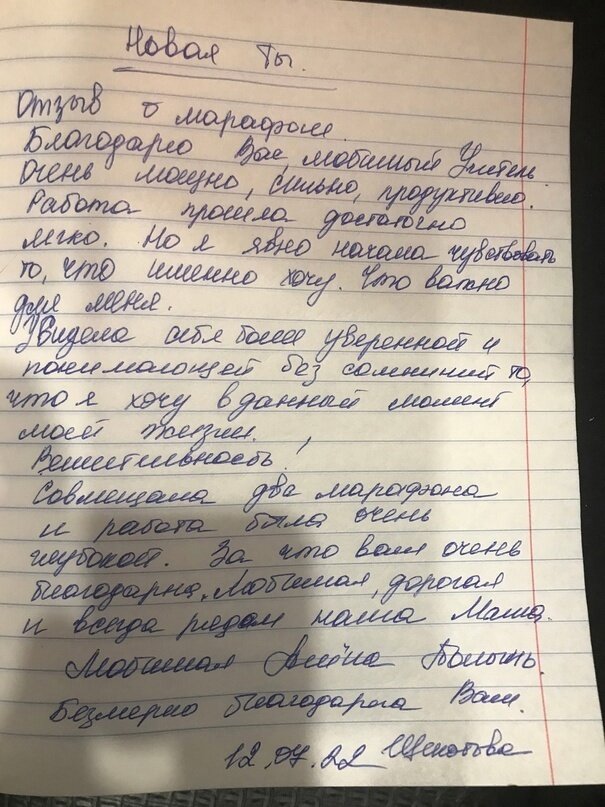 Новая Ты.
Отзыв о марафоне.
Благодарю Вас, любимый Учитель
Очень мощно, сильно, продуктивно.
Работа прошла достаточно
легко. Но я явно начала чувствовать
то, что именно хочу. Что важно
для меня.
Увидела себя более уверенной и
понимающей без сомнений то,
что я хочу в данный момент
моей жизни.
Решительность!
Совмещала два марафона
и работа была очень
глубокой. За что вам очень
благодарна. Любимая, дорогая
и всегда рядом наша Маша.
Любимая Алёна
Безмерно благодарна Вам.
12.07.22